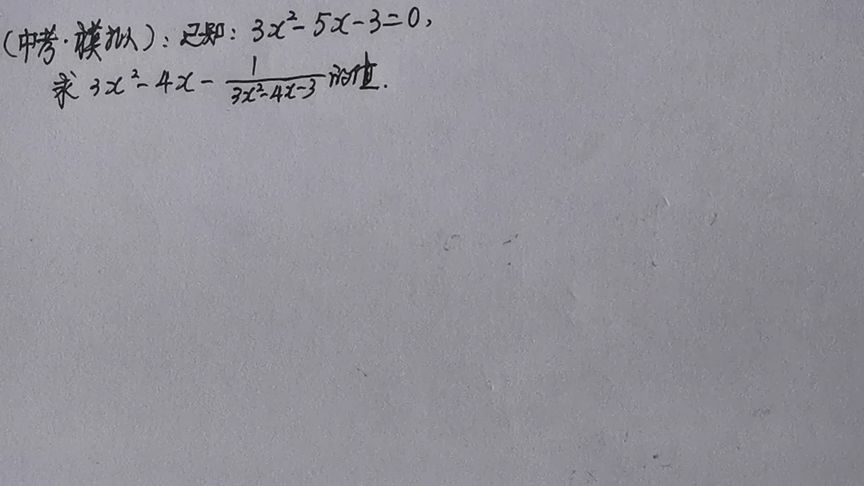 (中考·模拟):已知:3x²-5x-3=0,
求 3x²-4x-\frac{1}{3x²-4x-3}的值.